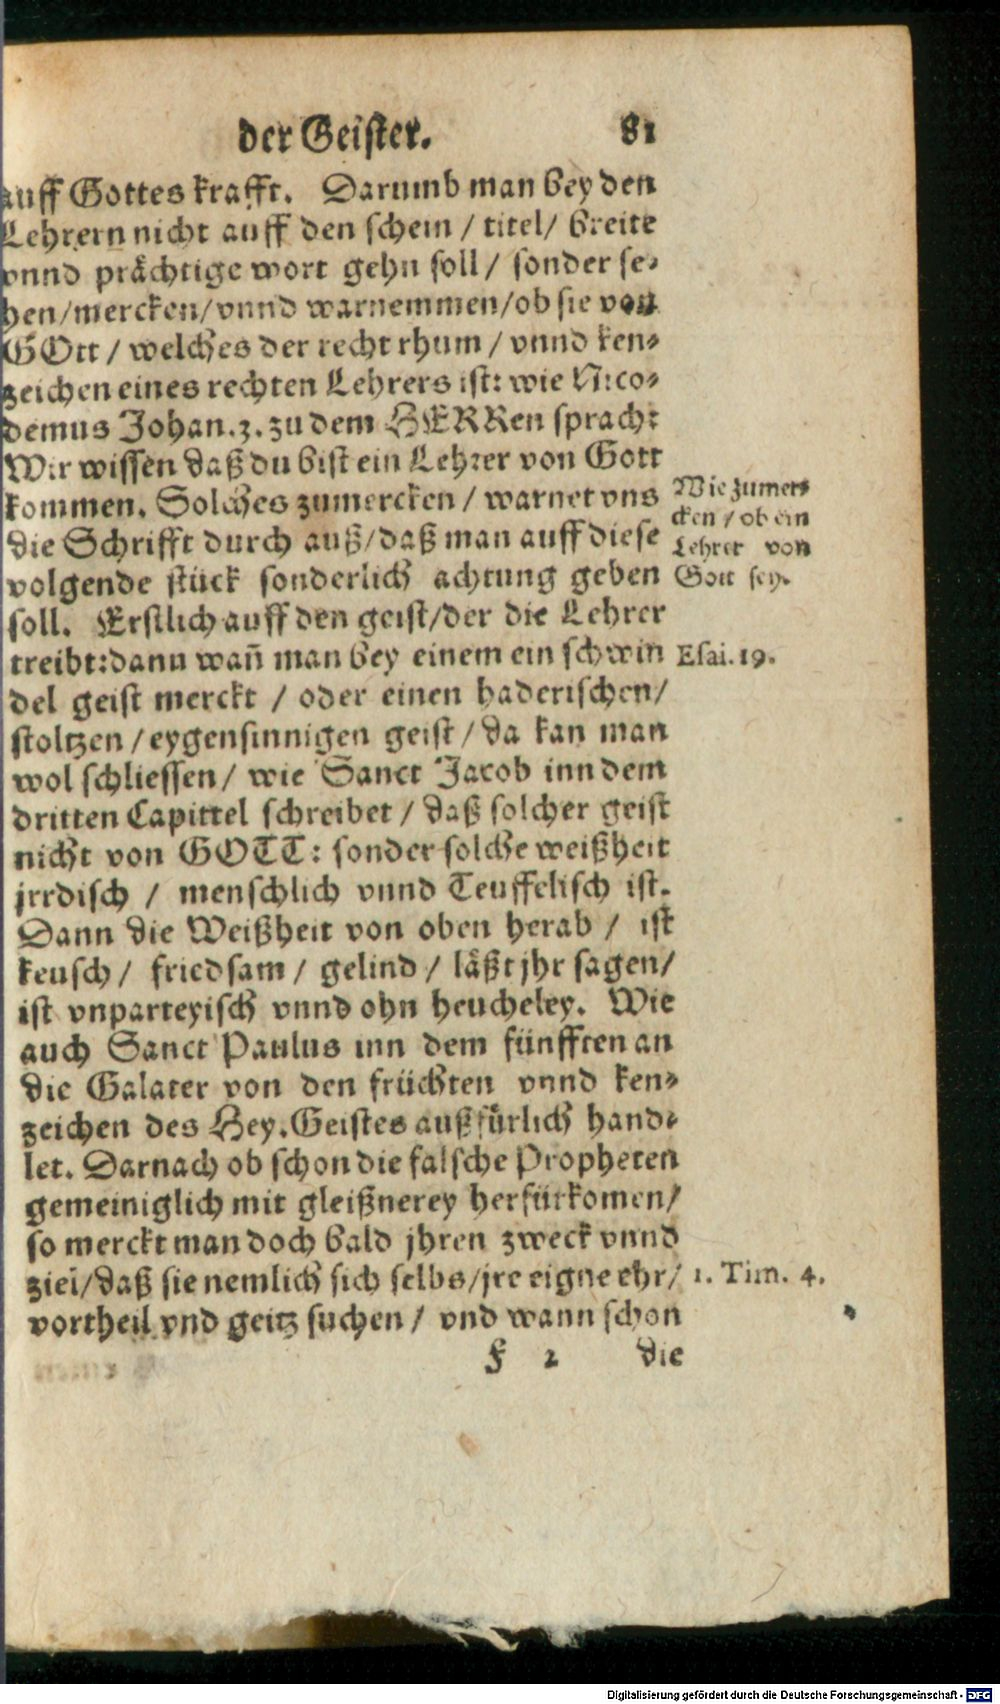 der Geister. 81
auff Gottes krafft. Darumb man bey den
Lehrern nicht auff den schein / titel / breite
vnnd prächtige wort gehn soll / sonder se-
hen/mercken/vnnd warnemmen/ob sie von
GOtt / welches der recht rhum / vnnd ken-
zeichen eines rechten Lehrers ist: wie Nico-
demus Johan.3. zu dem HERRen sprach:
Wir wissen daß du bist ein Lehrer von Gott
kommen. Solches zumercken / warnet vns
die Schrifft durch auß/daß man auff diese
volgende stück sonderlich achtung geben
soll. Erstlich auff den geist/der die Lehrer
treibt:dann wañ man bey einem ein schwin
del geist merckt / oder einen haderischen/
stoltzen/eygensinnigen geist/da kan man
wol schliessen/ wie Sanct Jacob inn dem
dritten Capittel schreibet / daß solcher geist
nicht von GOTT: sonder solche weißheit
jrrdisch / menschlich vnnd Teuffelisch ist.
Dann die Weißheit von oben herab / ist
keusch / friedsam / gelind / läßt jhr sagen/
ist vnparteyisch vnnd ohn heucheley. Wie
auch Sanct Paulus inn dem fünfften an
die Galater von den früchten vnnd ken-
zeichen des Hey.Geistes außfürlich hand-
let. Darnach ob schon die falsche Propheten
gemeiniglich mit gleißnerey herfürkomen/
so merckt man doch bald jhren zweck vnnd
ziel/daß sie nemlich sich selbs/jre eigne ehr/
vortheil vnd geitz suchen / vnd wann schon
F 2 die
Wie zumer-
cken / ob ein
Lehrer von
Gott sey.
Esai. 19.
1. Tim. 4.
Digitalisierung gefördert durch die Deutsche Forschungsgemeinschaft - DFG